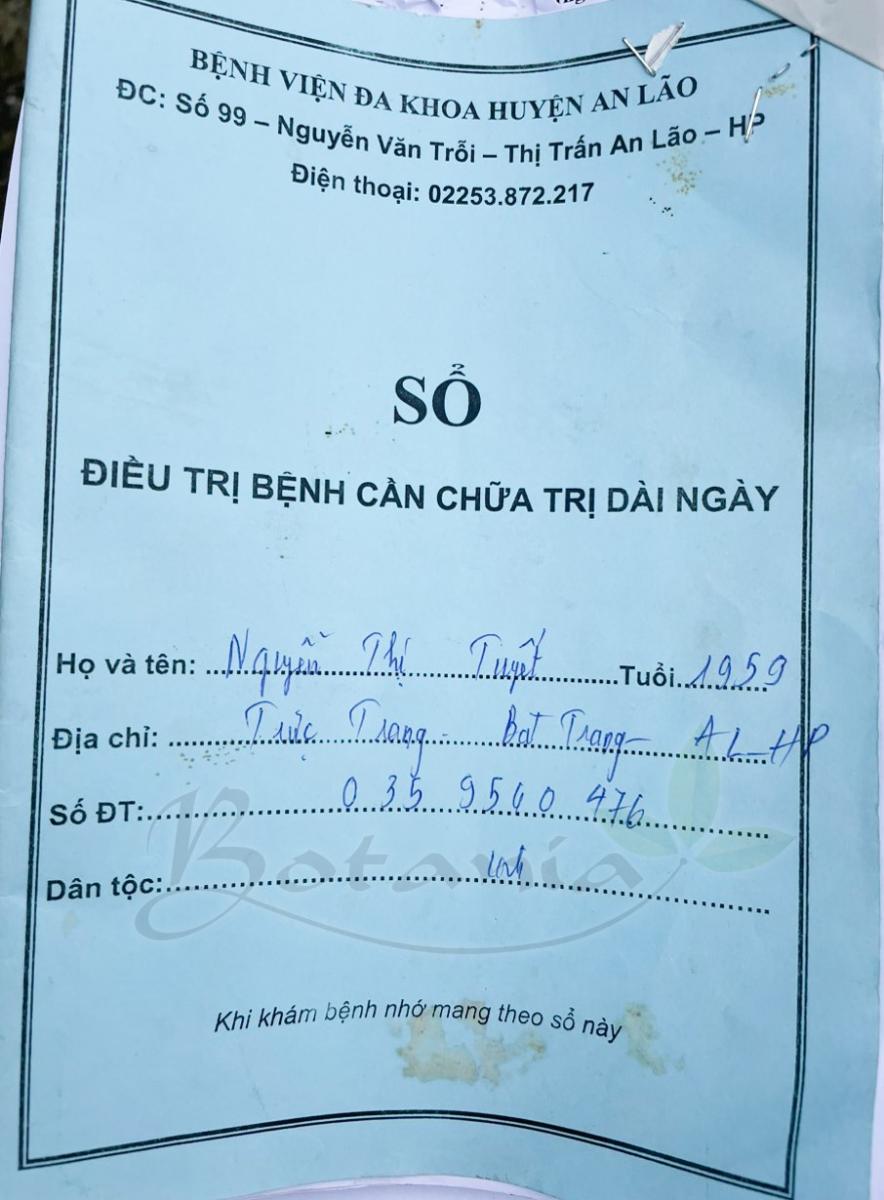 BỆNH VIỆN ĐA KHOA HUYỆN AN LÃO
ĐC: Số 99 – Nguyễn Văn Trỗi – Thị Trấn An Lão – HP
Điện thoại: 02253.872.217
SỔ
ĐIỀU TRỊ BỆNH CẦN CHỮA TRỊ DÀI NGÀY
Họ và tên: Nguyễn Thị Tuyết Tuổi 1959
Địa chỉ: Trực Trang - Bat Trang - AL-HP
Số ĐT: 035 9540 476
Dân tộc:
Botania
Khi khám bệnh nhớ mang theo sổ này